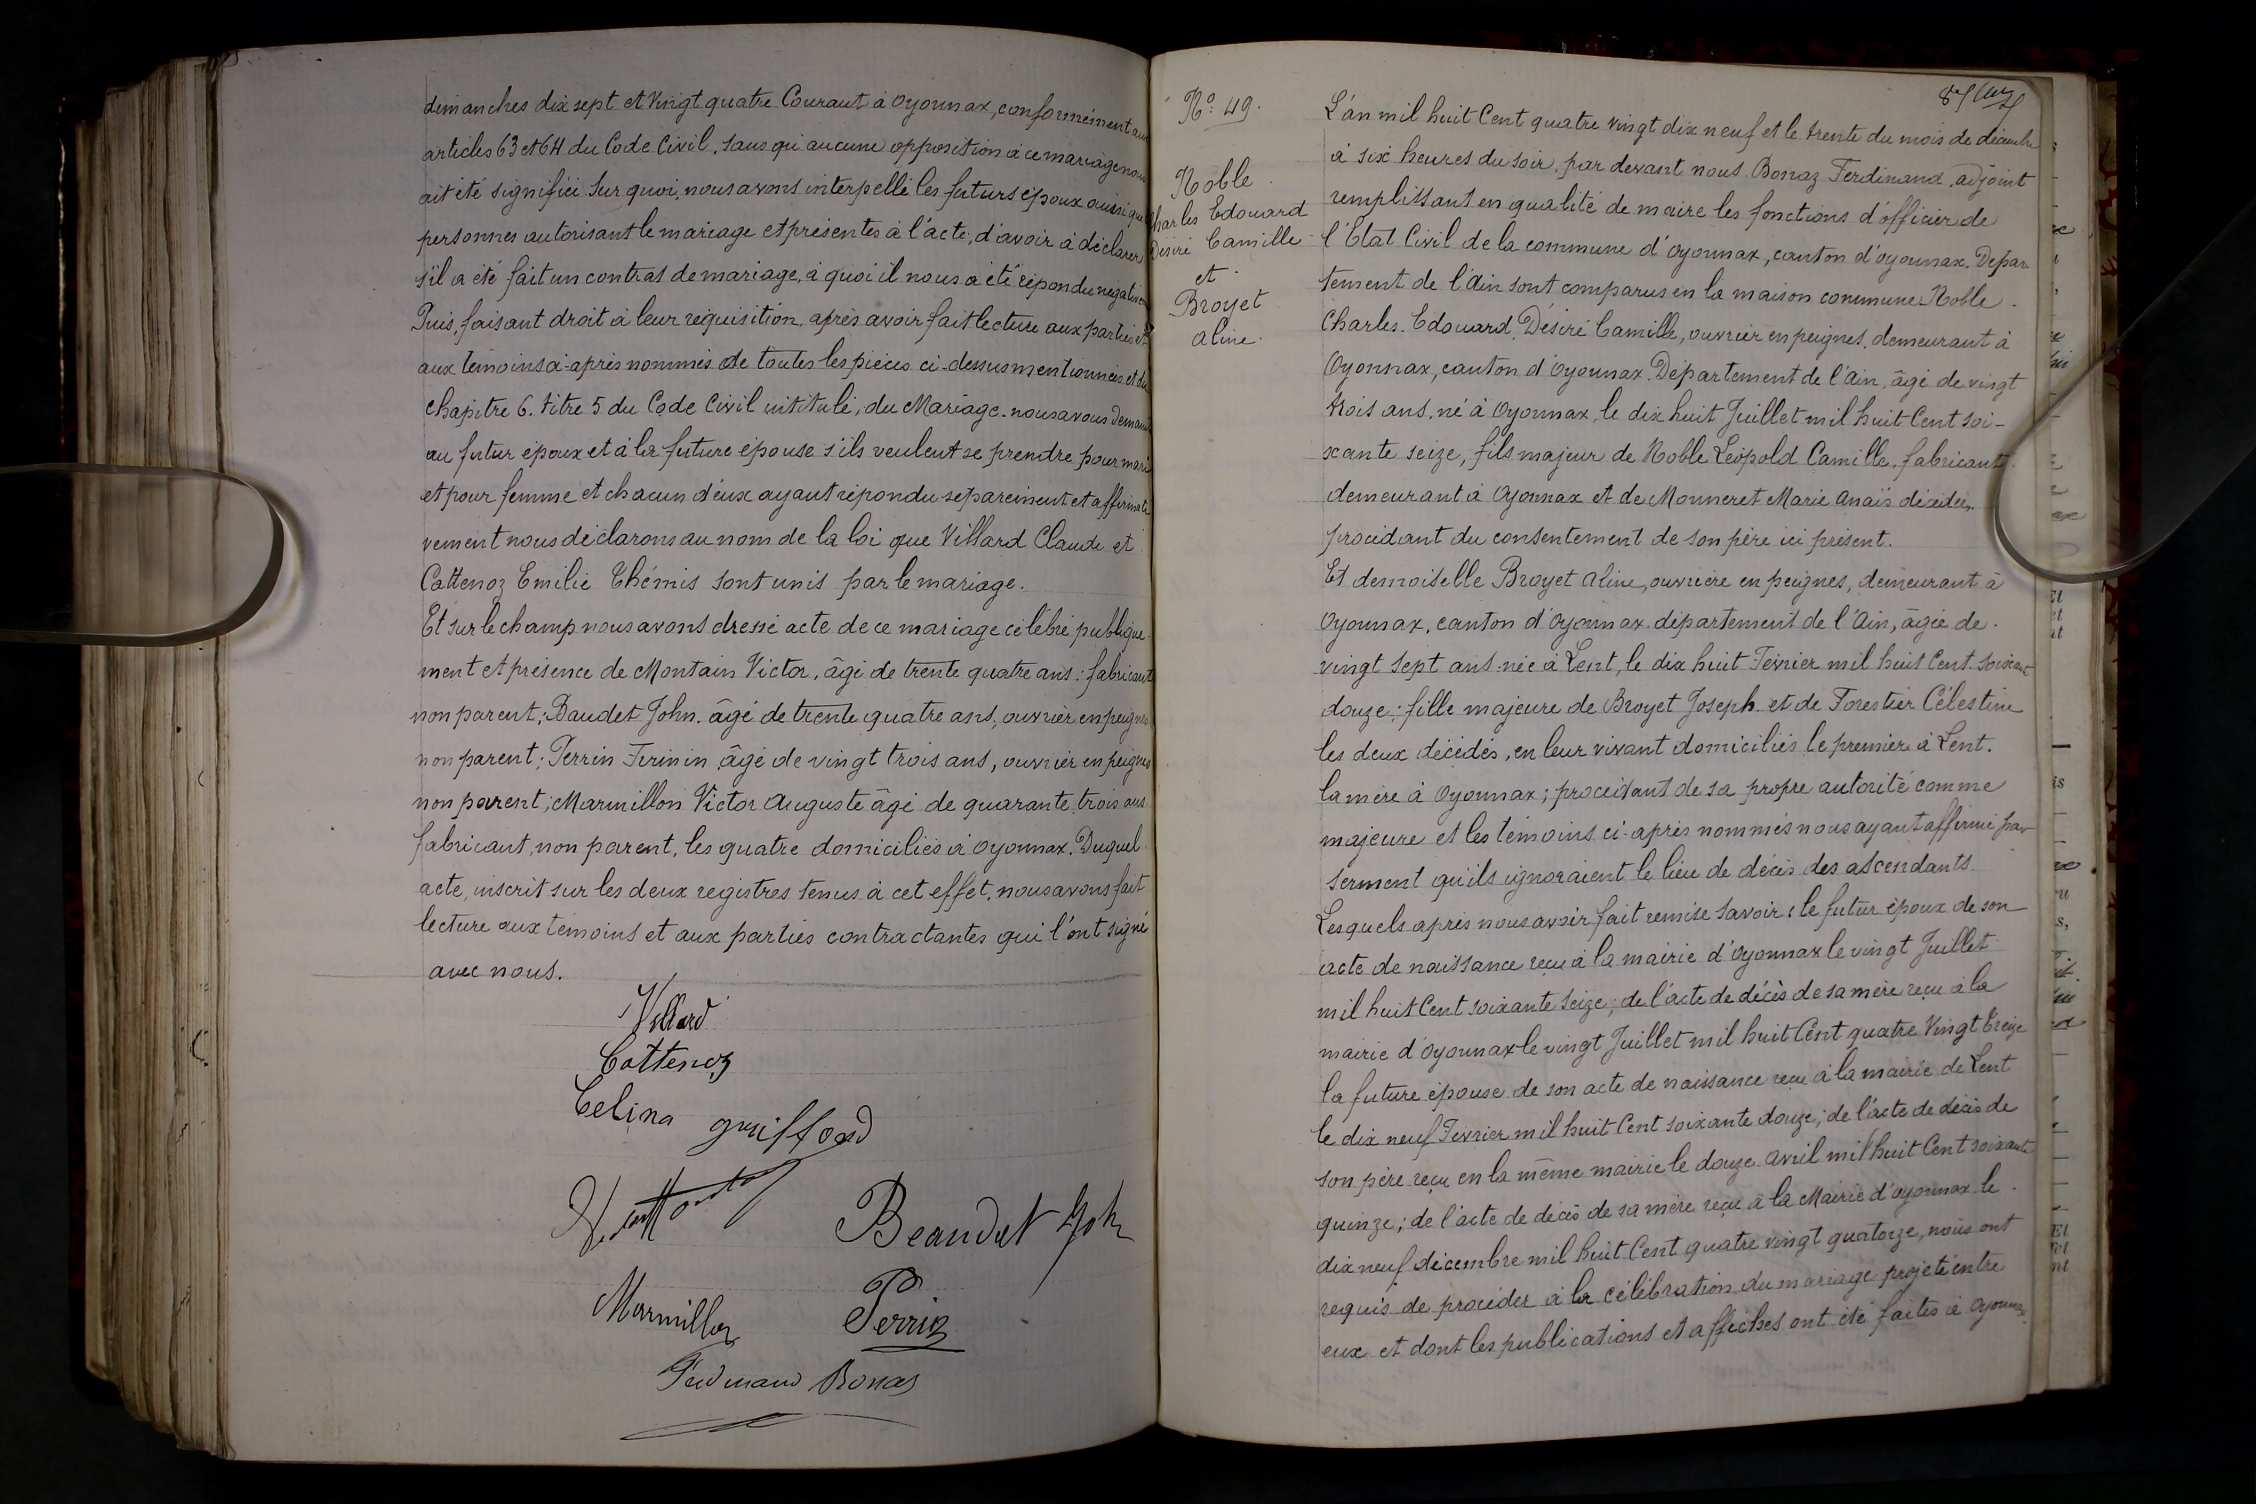 dimanches dix sept et vingt quatre Courant à Oyonnax, conformément aux
articles 63 et 64 du Code Civil. sans qu'aucune opposition à ce mariage nous
ait été signifiée Sur quoi, nous avons interpellé les futurs époux ainsi que
personnes autorisant le mariage et présentes à l'acte, d'avoir à déclarer
s'il a été fait un contrat de mariage, à quoi il nous a été répondu négative
Puis, faisant droit à leur réquisition, après avoir fait lecture aux parties et
aux témoins ci-après nommés de toutes les pièces ci-dessus mentionnées et du
chapitre 6. titre 5 du Code Civil intitulé, du Mariage. nous avons demandé
au futur époux et à la future épouse s'ils veulent se prendre pour mari
et pour femme et chacun d'eux ayant répondu séparément et affirmati
vement nous déclarons au nom de la loi que Villard Claude et
Cottenoz Emilie Thémis sont unis par le mariage.
Et sur le champ nous avons dressé acte de ce mariage célébré publique
ment et présence de Montain Victor, âgé de trente quatre ans; fabricant
non parent; Baudet John. âgé de trente quatre ans, ouvrier en peignes
non parent; Perrin Firinin âgé de vingt trois ans, ouvrier en peignes
non parent; Marmillon Victor Auguste âgé de quarante trois ans
fabricant, non parent, les quatre domiciliés à Oyonnax. Duquel
acte, inscrit sur les deux registres tenus à cet effet, nous avons fait
lecture aux témoins et aux parties contractantes qui l'ont signé
avec nous.
Villard
Cottenoz
Celina guiffard
Beaudet John
Marmillon Perrin
Ferdinand Bonaz
No. 49.
Noble
Charles Edouard
Désiré Camille
et
Broyet
Aline.
87
L'an mil huit Cent quatre vingt dix neuf et le trente du mois de décembre
à six heures du soir, par devant nous Bonaz Ferdinand, adjoint
remplissant en qualité de maire les fonctions d'officier de
l'Etat Civil de la commune d'Oyonnax, canton d'Oyonnax. Dépar
tement de l'Ain sont comparus en la maison commune Noble
Charles. Edouard. Désiré Camille, ouvrier en peignes, demeurant à
Oyonnax, canton d'Oyonnax. Département de l'Ain, âgé de vingt
trois ans, né à Oyonnax, le dix huit Juillet mil huit Cent soi-
xante seize, fils majeur de Noble Léopold Camille, fabricant
demeurant à Oyonnax et de Monneret Marie Anaïs décédée,
procédant du consentement de son père ici présent.
Et demoiselle Broyet Aline, ouvrière en peignes, demeurant à
Oyonnax, canton d'Oyonnax département de l'Ain, âgée de
vingt sept ans née à Lent, le dix huit Février mil huit Cent soixante
douze; fille majeure de Broyet Joseph et de Forestier Célestine
les deux décédés, en leur vivant domiciliés le premier à Lent.
la mère à Oyonnax; procédant de sa propre autorité comme
majeure et les témoins ci-après nommés nous ayant affirmé par
serment qu'ils ignoraient le lieu de décès des ascendants
Lesquels après nous avoir fait remise savoir: le futur époux de son
acte de naissance reçu à la mairie d'Oyonnax le vingt Juillet
mil huit Cent soixante seize; de l'acte de décès de sa mère reçu à la
mairie d'Oyonnax le vingt Juillet mil huit Cent quatre Vingt treize
la future épouse de son acte de naissance reçu à la mairie de Lent
le dix neuf Février mil huit Cent soixante douze; de l'acte de décès de
son père reçu en la même mairie le douze avril mil huit Cent soixante
quinze; de l'acte de décès de sa mère reçu à la Mairie d'Oyonnax le
dix neuf décembre mil huit Cent quatre vingt quatorze, nous ont
requis de procéder à la célébration du mariage projeté entre
eux et dont les publications et affiches ont été faites à Oyonnax